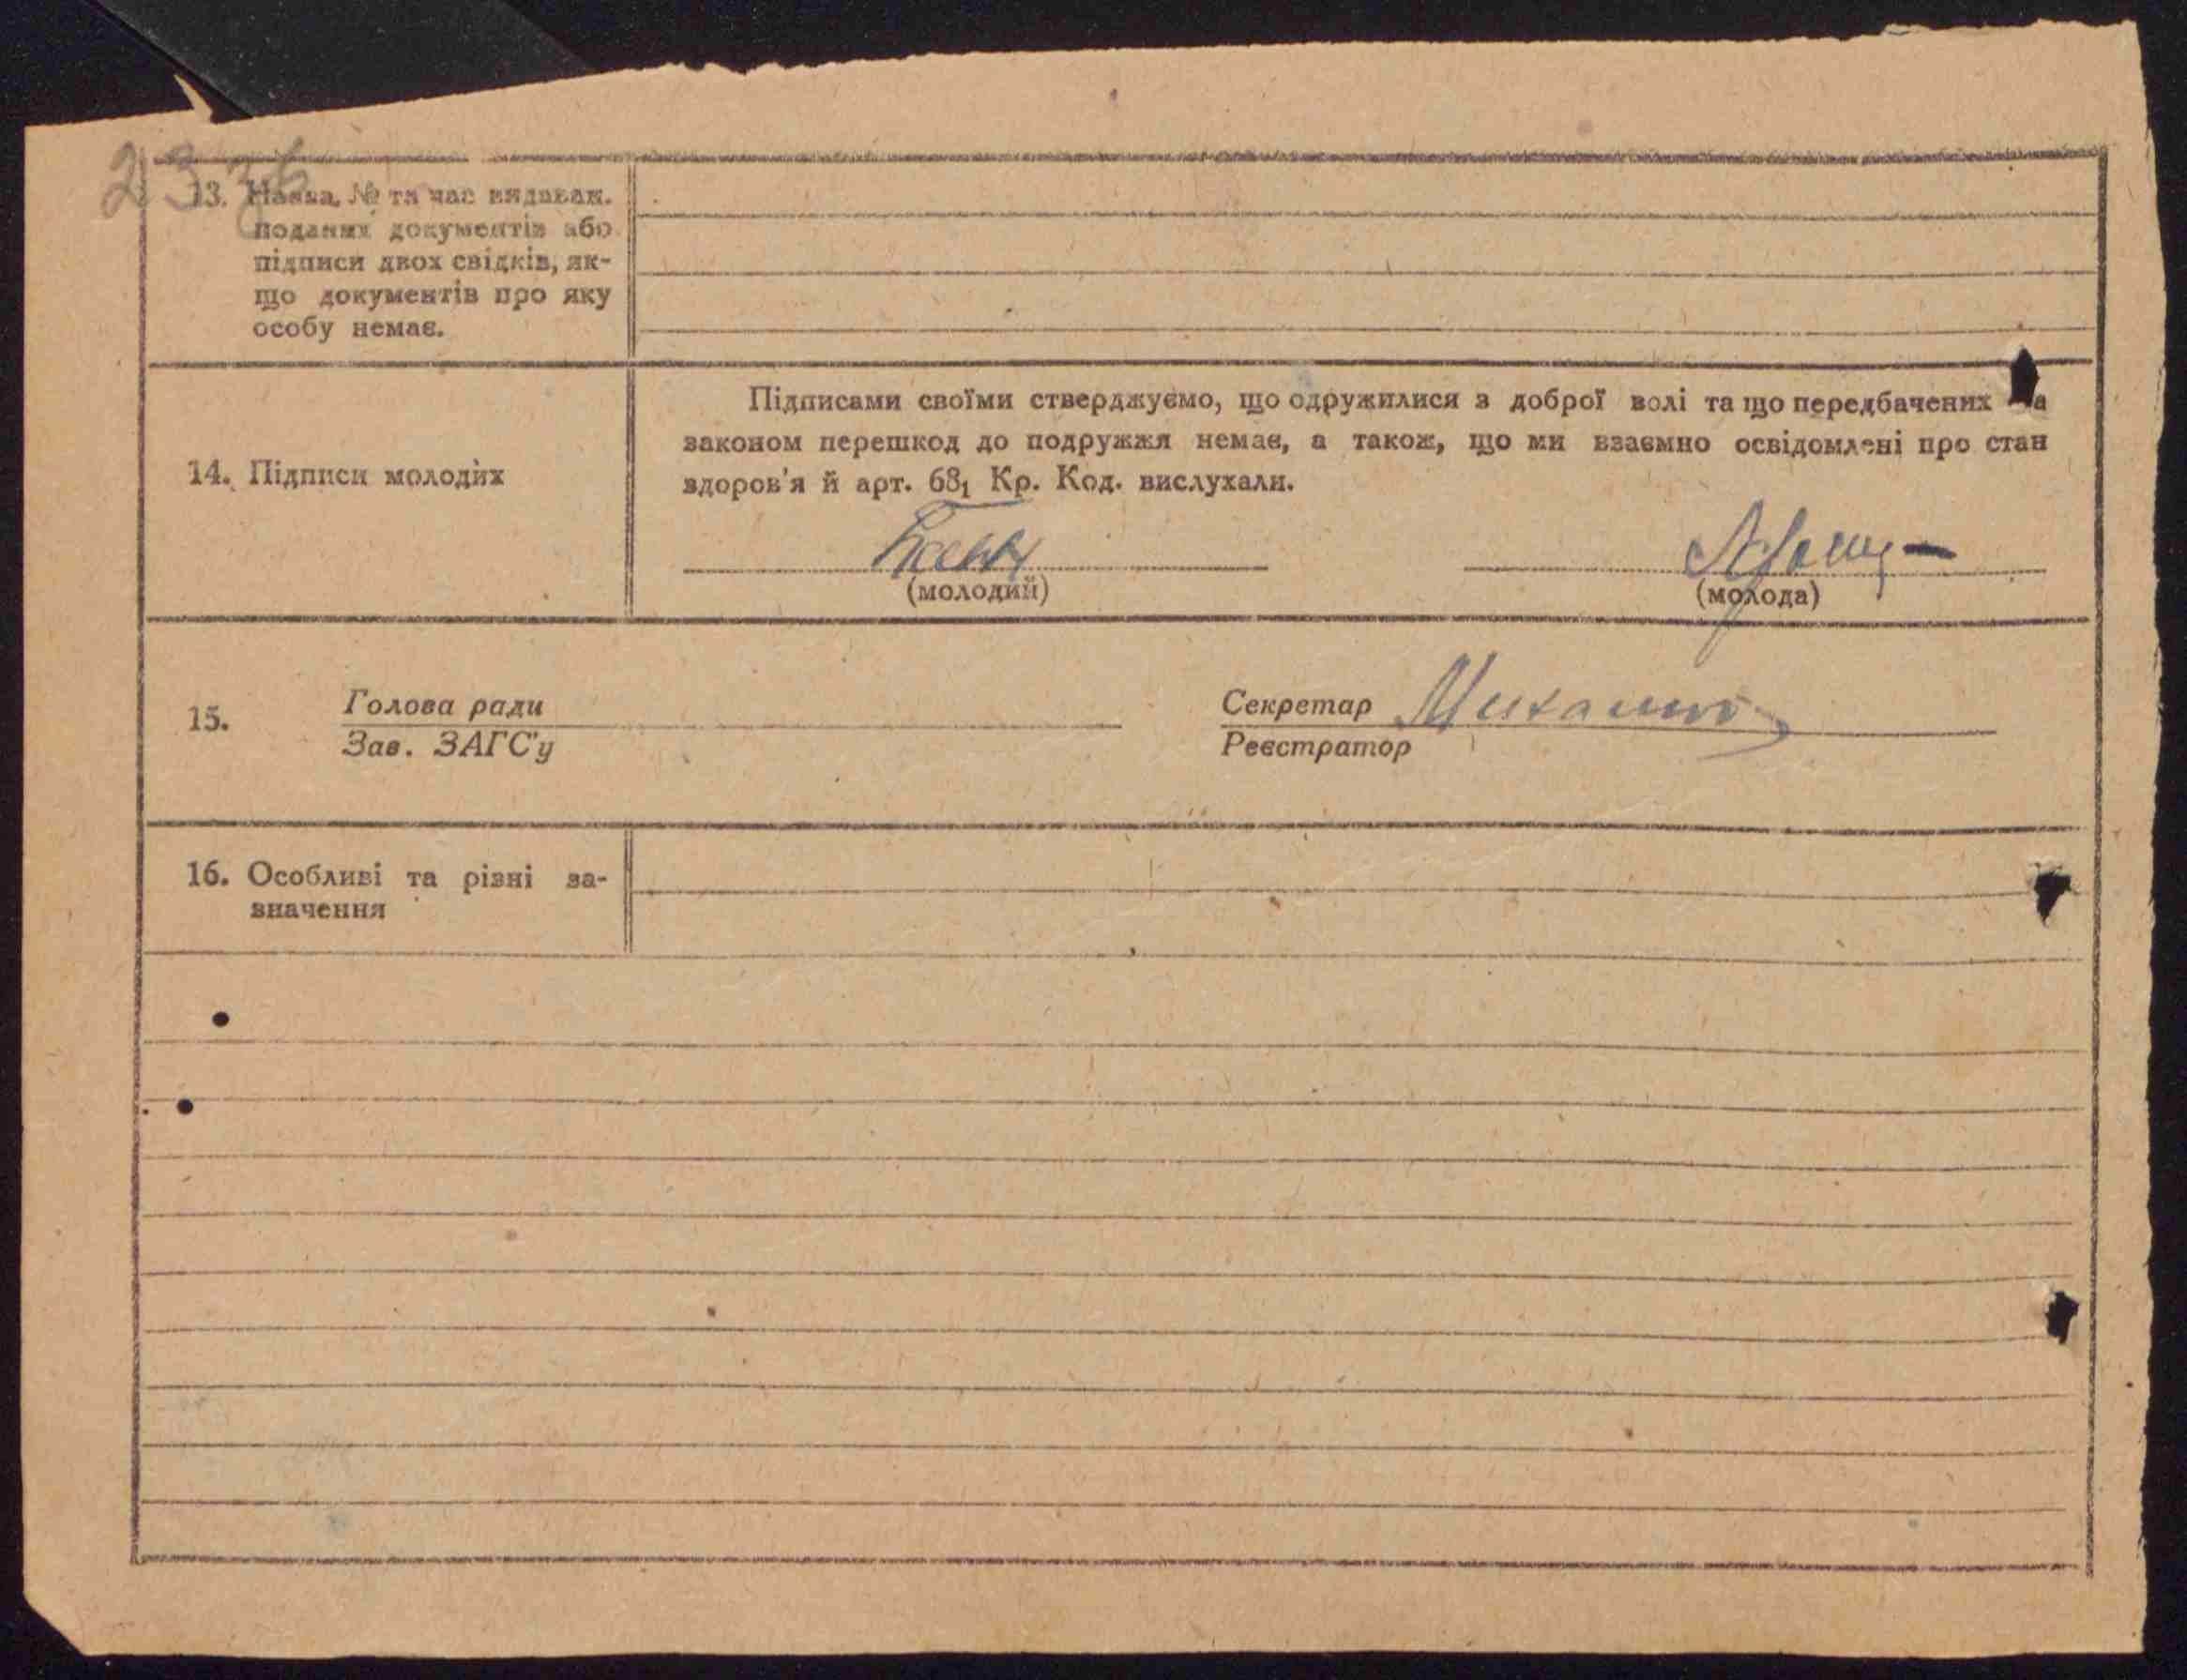 13. Назва, № та час видаван.
поданих документів або
підписи двох свідків, як-
що документів про яку
особу немає.
Підписами своїми стверджуємо, що одружилися з доброї волі та що передбачених за
законом перешкод до подружжя немає, а також, що ми взаємно освідомлені про стан
здоров'я й арт. 68₁ Кр. Код. вислухали.
14. Підписи молодих
(молодий) (молода)
15. Голова ради Секретар
Зав. ЗАГС'у Реєстратор
16. Особливі та різні за-
значення